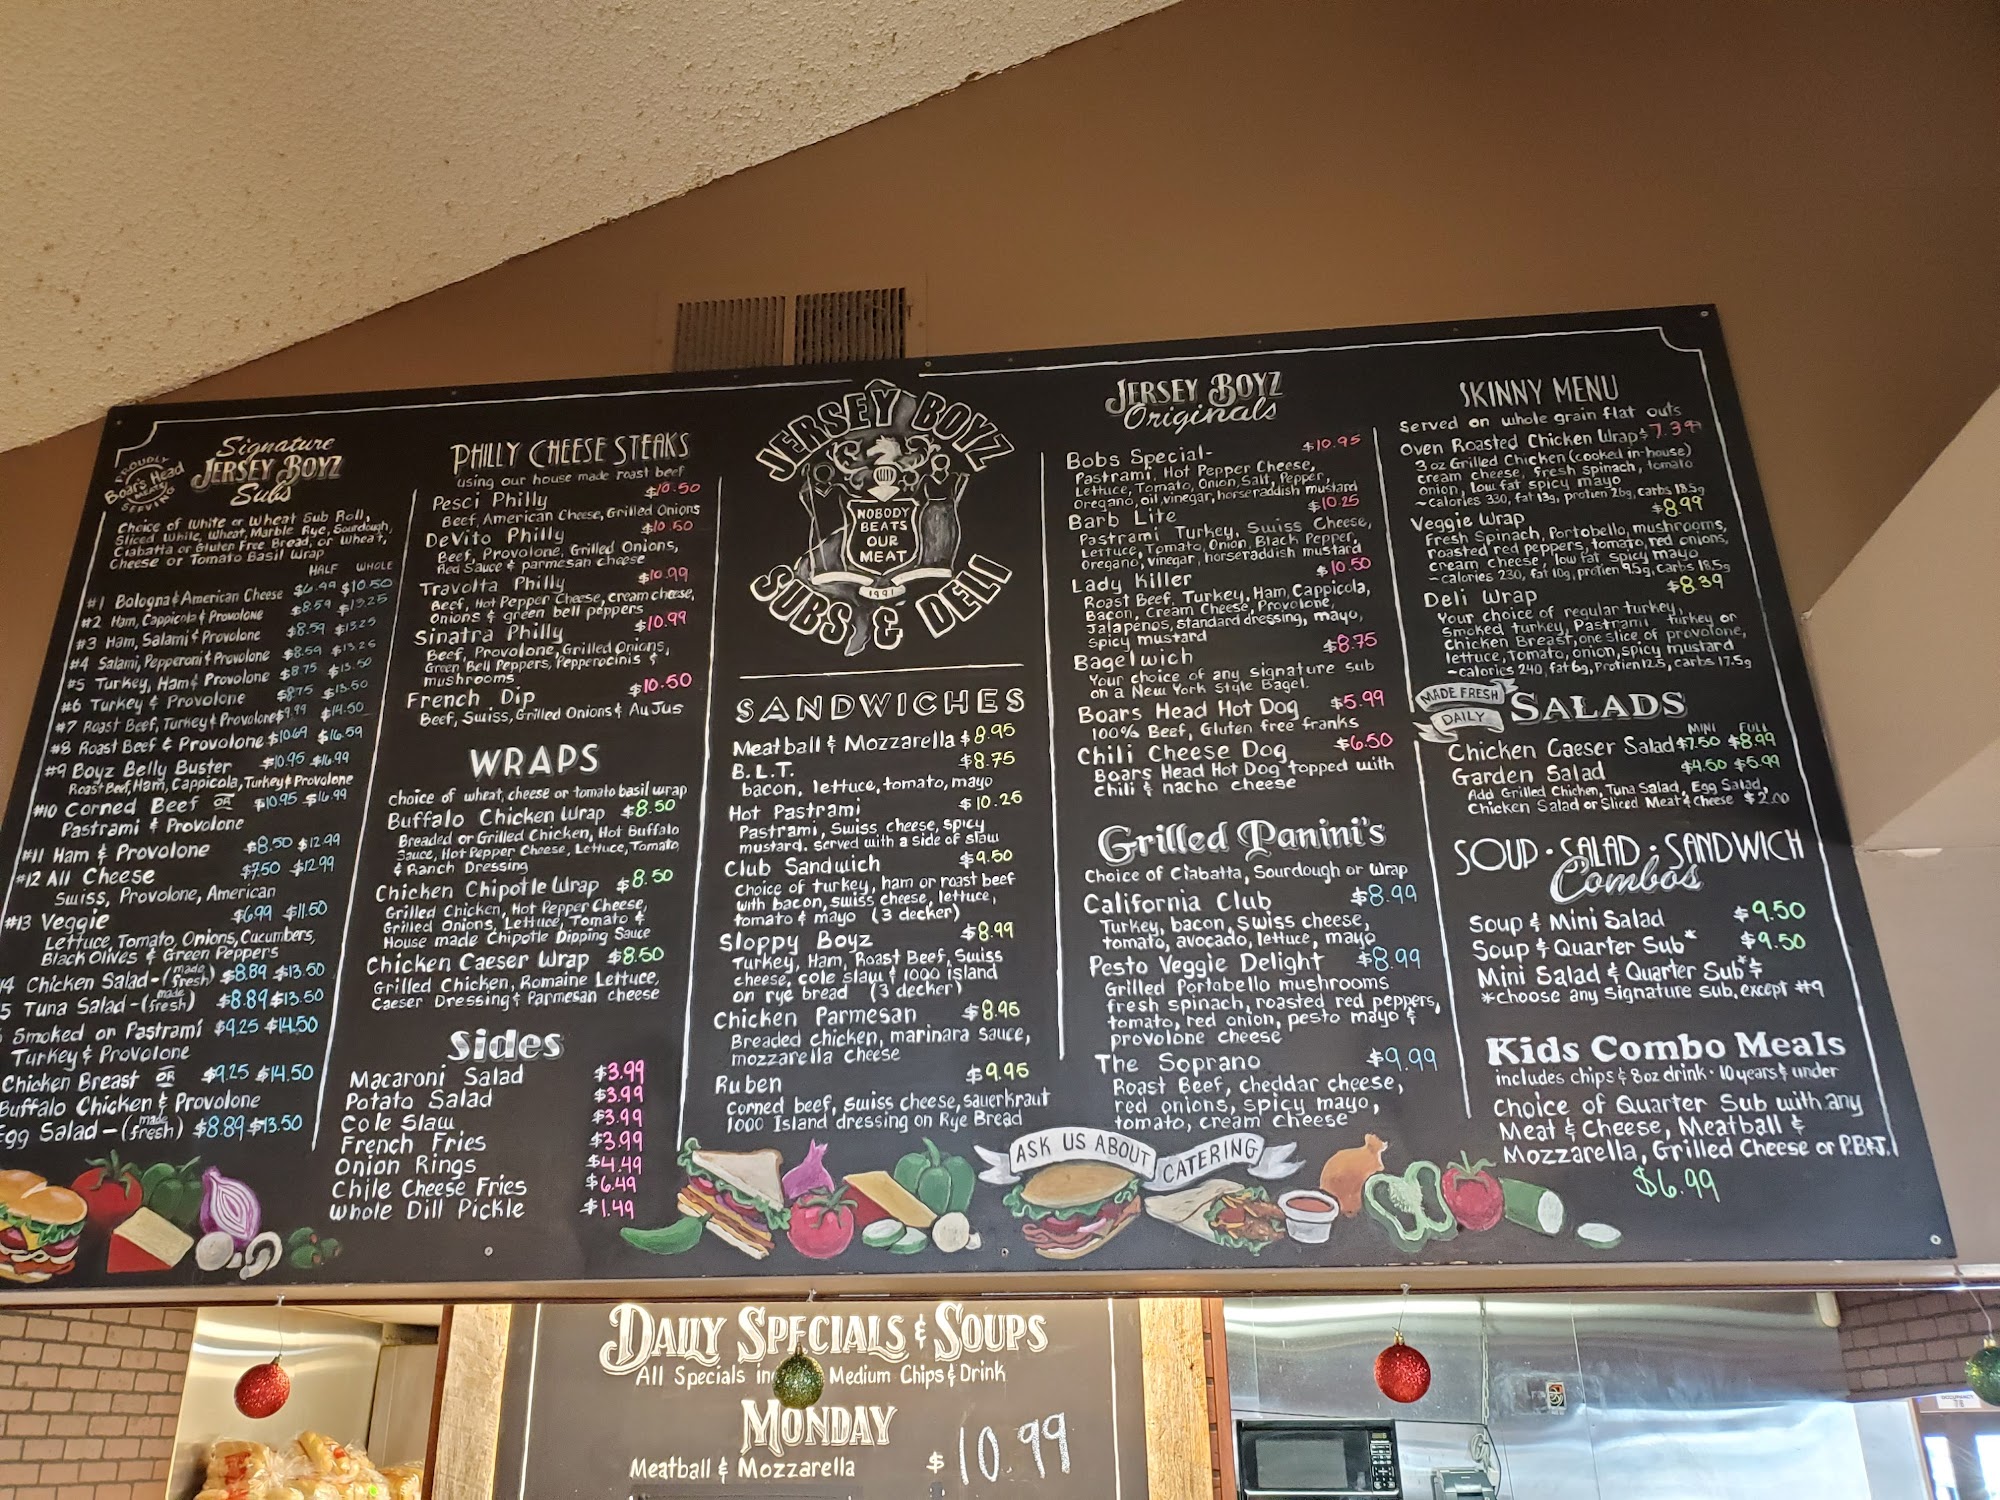 PROUDLY
Boar's Head
MEATS
SERVING
Signature
JERSEY BOYZ
Subs
Choice of White or Wheat Sub Roll,
Sliced White, Wheat, Marble Rye, Sourdough,
Ciabatta or Gluten Free Bread, or Wheat,
Cheese or Tomato Basil Wrap
HALF WHOLE
#1 Bologna & American Cheese $6.99 $10.50
#2 Ham, Cappicola & Provolone $8.59 $13.25
#3 Ham, Salami & Provolone $8.59 $13.25
#4 Salami, Pepperoni & Provolone $8.59 $13.25
#5 Turkey, Ham & Provolone $8.75 $13.50
#6 Turkey & Provolone $8.75 $13.50
#7 Roast Beef, Turkey & Provolone $9.99 $14.50
#8 Roast Beef & Provolone $10.69 $16.59
#9 Boyz Belly Buster $10.95 $16.99
Roast Beef, Ham, Cappicola, Turkey & Provolone
#10 Corned Beef OR $10.95 $16.99
Pastrami & Provolone
#11 Ham & Provolone $8.50 $12.99
#12 All Cheese $7.50 $12.99
Swiss, Provolone, American
#13 Veggie $6.99 $11.50
Lettuce, Tomato, Onions, Cucumbers,
Black Olives & Green Peppers
14 Chicken Salad - (made fresh) $8.89 $13.50
5 Tuna Salad - (made fresh) $8.89 $13.50
Smoked or Pastrami $9.25 $14.50
Turkey & Provolone
Chicken Breast OR $9.25 $14.50
Buffalo Chicken & Provolone
Egg Salad - (made fresh) $8.89 $13.50
PHILLY CHEESE STEAKS
using our house made roast beef
Pesci Philly $10.50
Beef, American Cheese, Grilled Onions
DeVito Philly $10.50
Beef, Provolone, Grilled Onions,
Red Sauce & parmesan cheese
Travolta Philly $10.99
Beef, Hot Pepper Cheese, cream cheese,
onions & green bell peppers
Sinatra Philly $10.99
Beef, Provolone, Grilled Onions,
Green Bell Peppers, Pepperocinis &
mushrooms
French Dip $10.50
Beef, Swiss, Grilled Onions & Au Jus
WRAPS
choice of wheat, cheese or tomato basil wrap
Buffalo Chicken Wrap $8.50
Breaded or Grilled Chicken, Hot Buffalo
Sauce, Hot Pepper Cheese, Lettuce, Tomato
& Ranch Dressing
Chicken Chipotle Wrap $8.50
Grilled Chicken, Hot Pepper Cheese,
Grilled Onions, Lettuce, Tomato &
House made Chipotle Dipping Sauce
Chicken Caeser Wrap $8.50
Grilled Chicken, Romaine Lettuce,
Caeser Dressing & Parmesan cheese
Sides
Macaroni Salad $3.99
Potato Salad $3.99
Cole Slaw $3.99
French Fries $3.99
Onion Rings $4.49
Chile Cheese Fries $6.49
Whole Dill Pickle $1.49
JERSEY BOYZ
NOBODY
BEATS
OUR
MEAT
1991
SUBS & DELI
SANDWICHES
Meatball & Mozzarella $8.95
B.L.T. $8.75
bacon, lettuce, tomato, mayo
Hot Pastrami $10.25
Pastrami, Swiss cheese, spicy
mustard. served with a side of slaw
Club Sandwich $9.50
Choice of turkey, ham or roast beef
with bacon, swiss cheese, lettuce,
tomato & mayo (3 decker)
Sloppy Boyz $8.99
Turkey, Ham, Roast Beef, Swiss
cheese, cole slaw & 1000 island
on rye bread (3 decker)
Chicken Parmesan $8.95
Breaded chicken, marinara sauce,
mozzarella cheese
Ruben $9.95
Corned beef, Swiss cheese, sauerkraut
1000 Island dressing on Rye Bread
JERSEY BOYZ
Originals
Bobs Special- $10.95
Pastrami, Hot Pepper Cheese,
Lettuce, Tomato, Onion, Salt, Pepper,
Oregano, oil, vinegar, horseraddish mustard
Barb Lite $10.25
Pastrami Turkey, Swiss Cheese,
Lettuce, Tomato, Onion, Black Pepper,
Oregano, vinegar, horseraddish mustard
Lady Killer $10.50
Roast Beef, Turkey, Ham, Cappicola,
Bacon, Cream Cheese, Provolone,
Jalapenos, standard dressing, mayo,
Spicy mustard
Bagelwich $8.75
Your choice of any signature sub
on a New York Style Bagel.
Boars Head Hot Dog $5.99
100% Beef, Gluten free franks
Chili Cheese Dog $6.50
Boars Head Hot Dog topped with
chili & nacho cheese
Grilled Panini's
Choice of Ciabatta, Sourdough or Wrap
California Club $8.99
Turkey, bacon, Swiss cheese,
tomato, avocado, lettuce, mayo
Pesto Veggie Delight $8.99
Grilled Portobello mushrooms
fresh spinach, roasted red peppers,
tomato, red onion, pesto mayo &
provolone cheese
The Soprano $9.99
Roast Beef, cheddar cheese,
red onions, spicy mayo,
tomato, cream cheese
ASK US ABOUT CATERING
SKINNY MENU
Served on whole grain flat outs
Oven Roasted Chicken Wrap $7.39
3 oz Grilled Chicken (cooked in-house)
cream cheese, fresh spinach, tomato
onion, low fat spicy mayo
~calories 330, fat 13g, protien 26g, carbs 18.5g
Veggie Wrap $8.99
Fresh Spinach, Portobello, mushrooms,
roasted red peppers, tomato, red onions,
cream cheese, low fat spicy mayo
~calories 230, fat 10g, protien 9.5g, carbs 18.5g
Deli Wrap $8.39
Your choice of regular turkey,
Smoked turkey, Pastrami turkey or
Chicken Breast, one slice of provolone,
lettuce, Tomato, onion, spicy mustard
~calories 240, fat 6g, Protien 12.5, carbs 17.5g
MADE FRESH
DAILY
SALADS
MINI FULL
Chicken Caeser Salad $7.50 $8.99
Garden Salad $4.50 $5.99
Add Grilled Chicken, Tuna Salad, Egg Salad,
Chicken Salad or Sliced Meat & Cheese $2.00
SOUP · SALAD · SANDWICH
Combos
Soup & Mini Salad $9.50
Soup & Quarter Sub* $9.50
Mini Salad & Quarter Sub*
*choose any Signature Sub, except #9
Kids Combo Meals
includes chips & 8oz drink · 10 years & under
Choice of Quarter Sub with any
Meat & Cheese, Meatball &
Mozzarella, Grilled Cheese or P.B.&J.
$6.99
DAILY SPECIALS & SOUPS
All Specials Medium Chips & Drink
MONDAY
Meatball & Mozzarella $10.99
OCCUPANCY
78